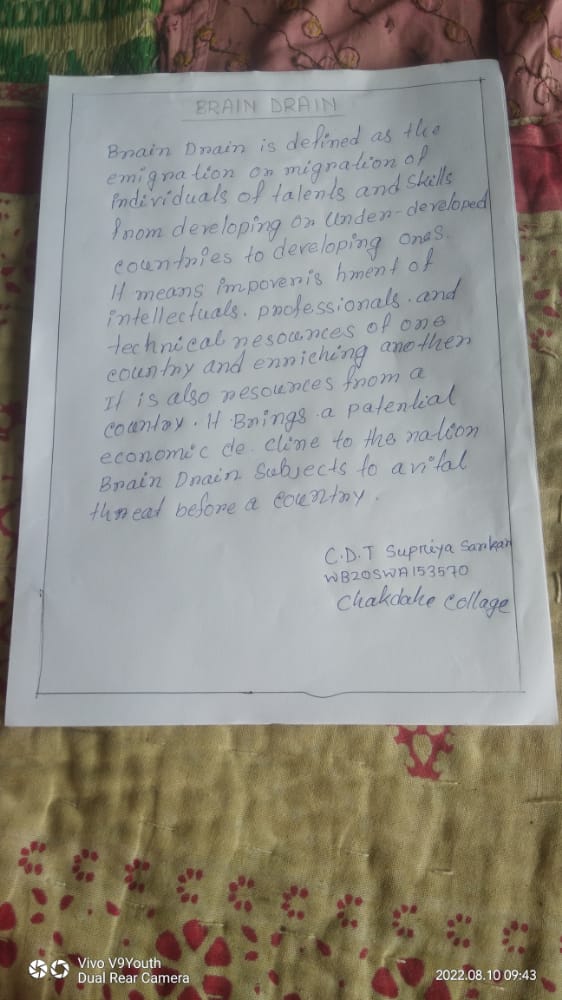 BRAIN DRAIN
Brain Drain is defined as the
emigration or migration of
individuals of talents and skills
from developing or under-developed
countries to developing ones.
It means impoveris hment of
intellectuals. professionals. and
technical resources of one
country and enriching another
It is also resources from a
country. It Brings a patential
economic de. cline to the nation
Brain Drain Subjects to a vital
threat before a country.
C.D.T Supriya Sarkar
WB20SWA153570
Chakdahe Collage
Vivo V9Youth
Dual Rear Camera
2022.08.10 09:43